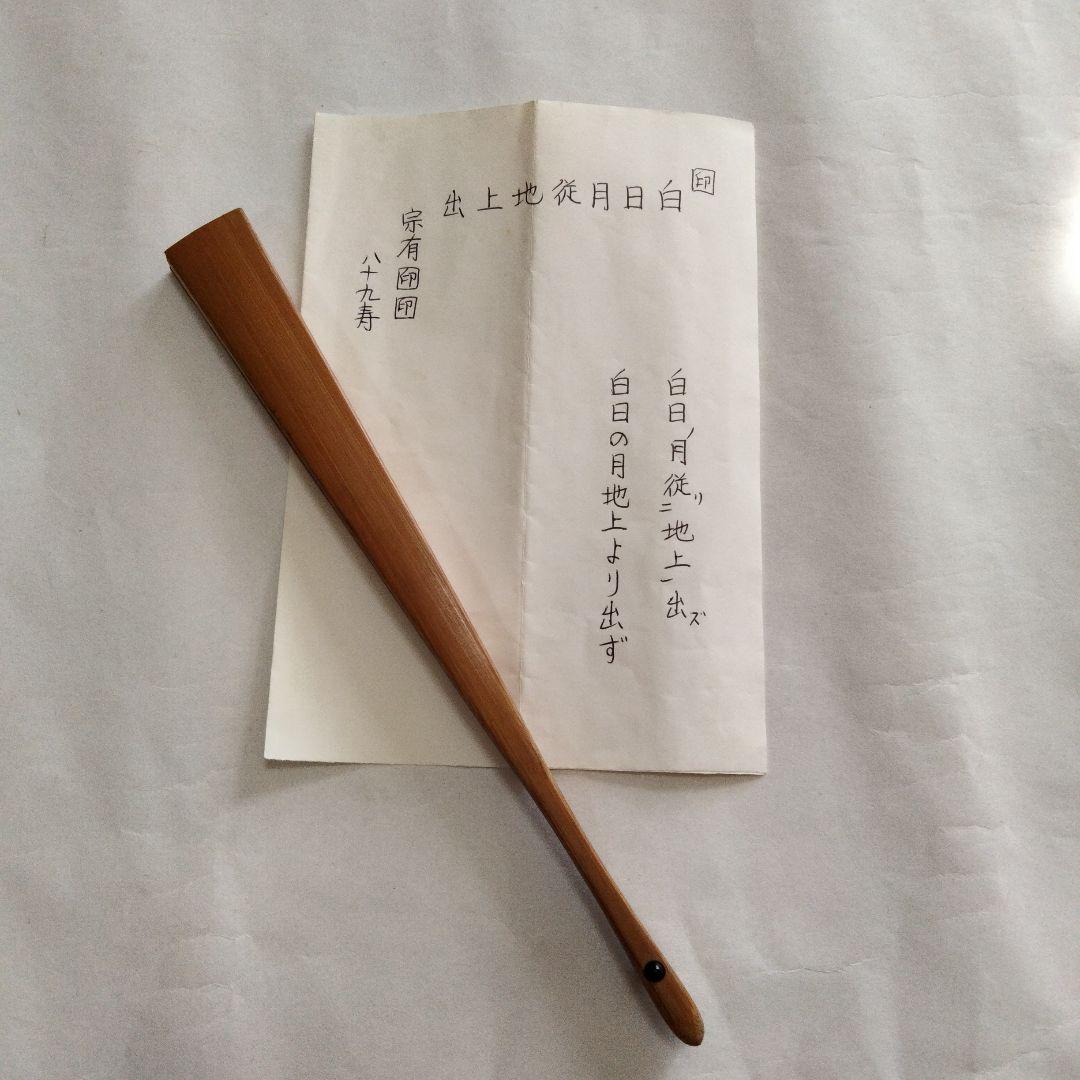 印
白日月従地上出
宗有 印 印
八十九寿
白日ノ月従リ二地上一出ズ
白日の月地上より出ず